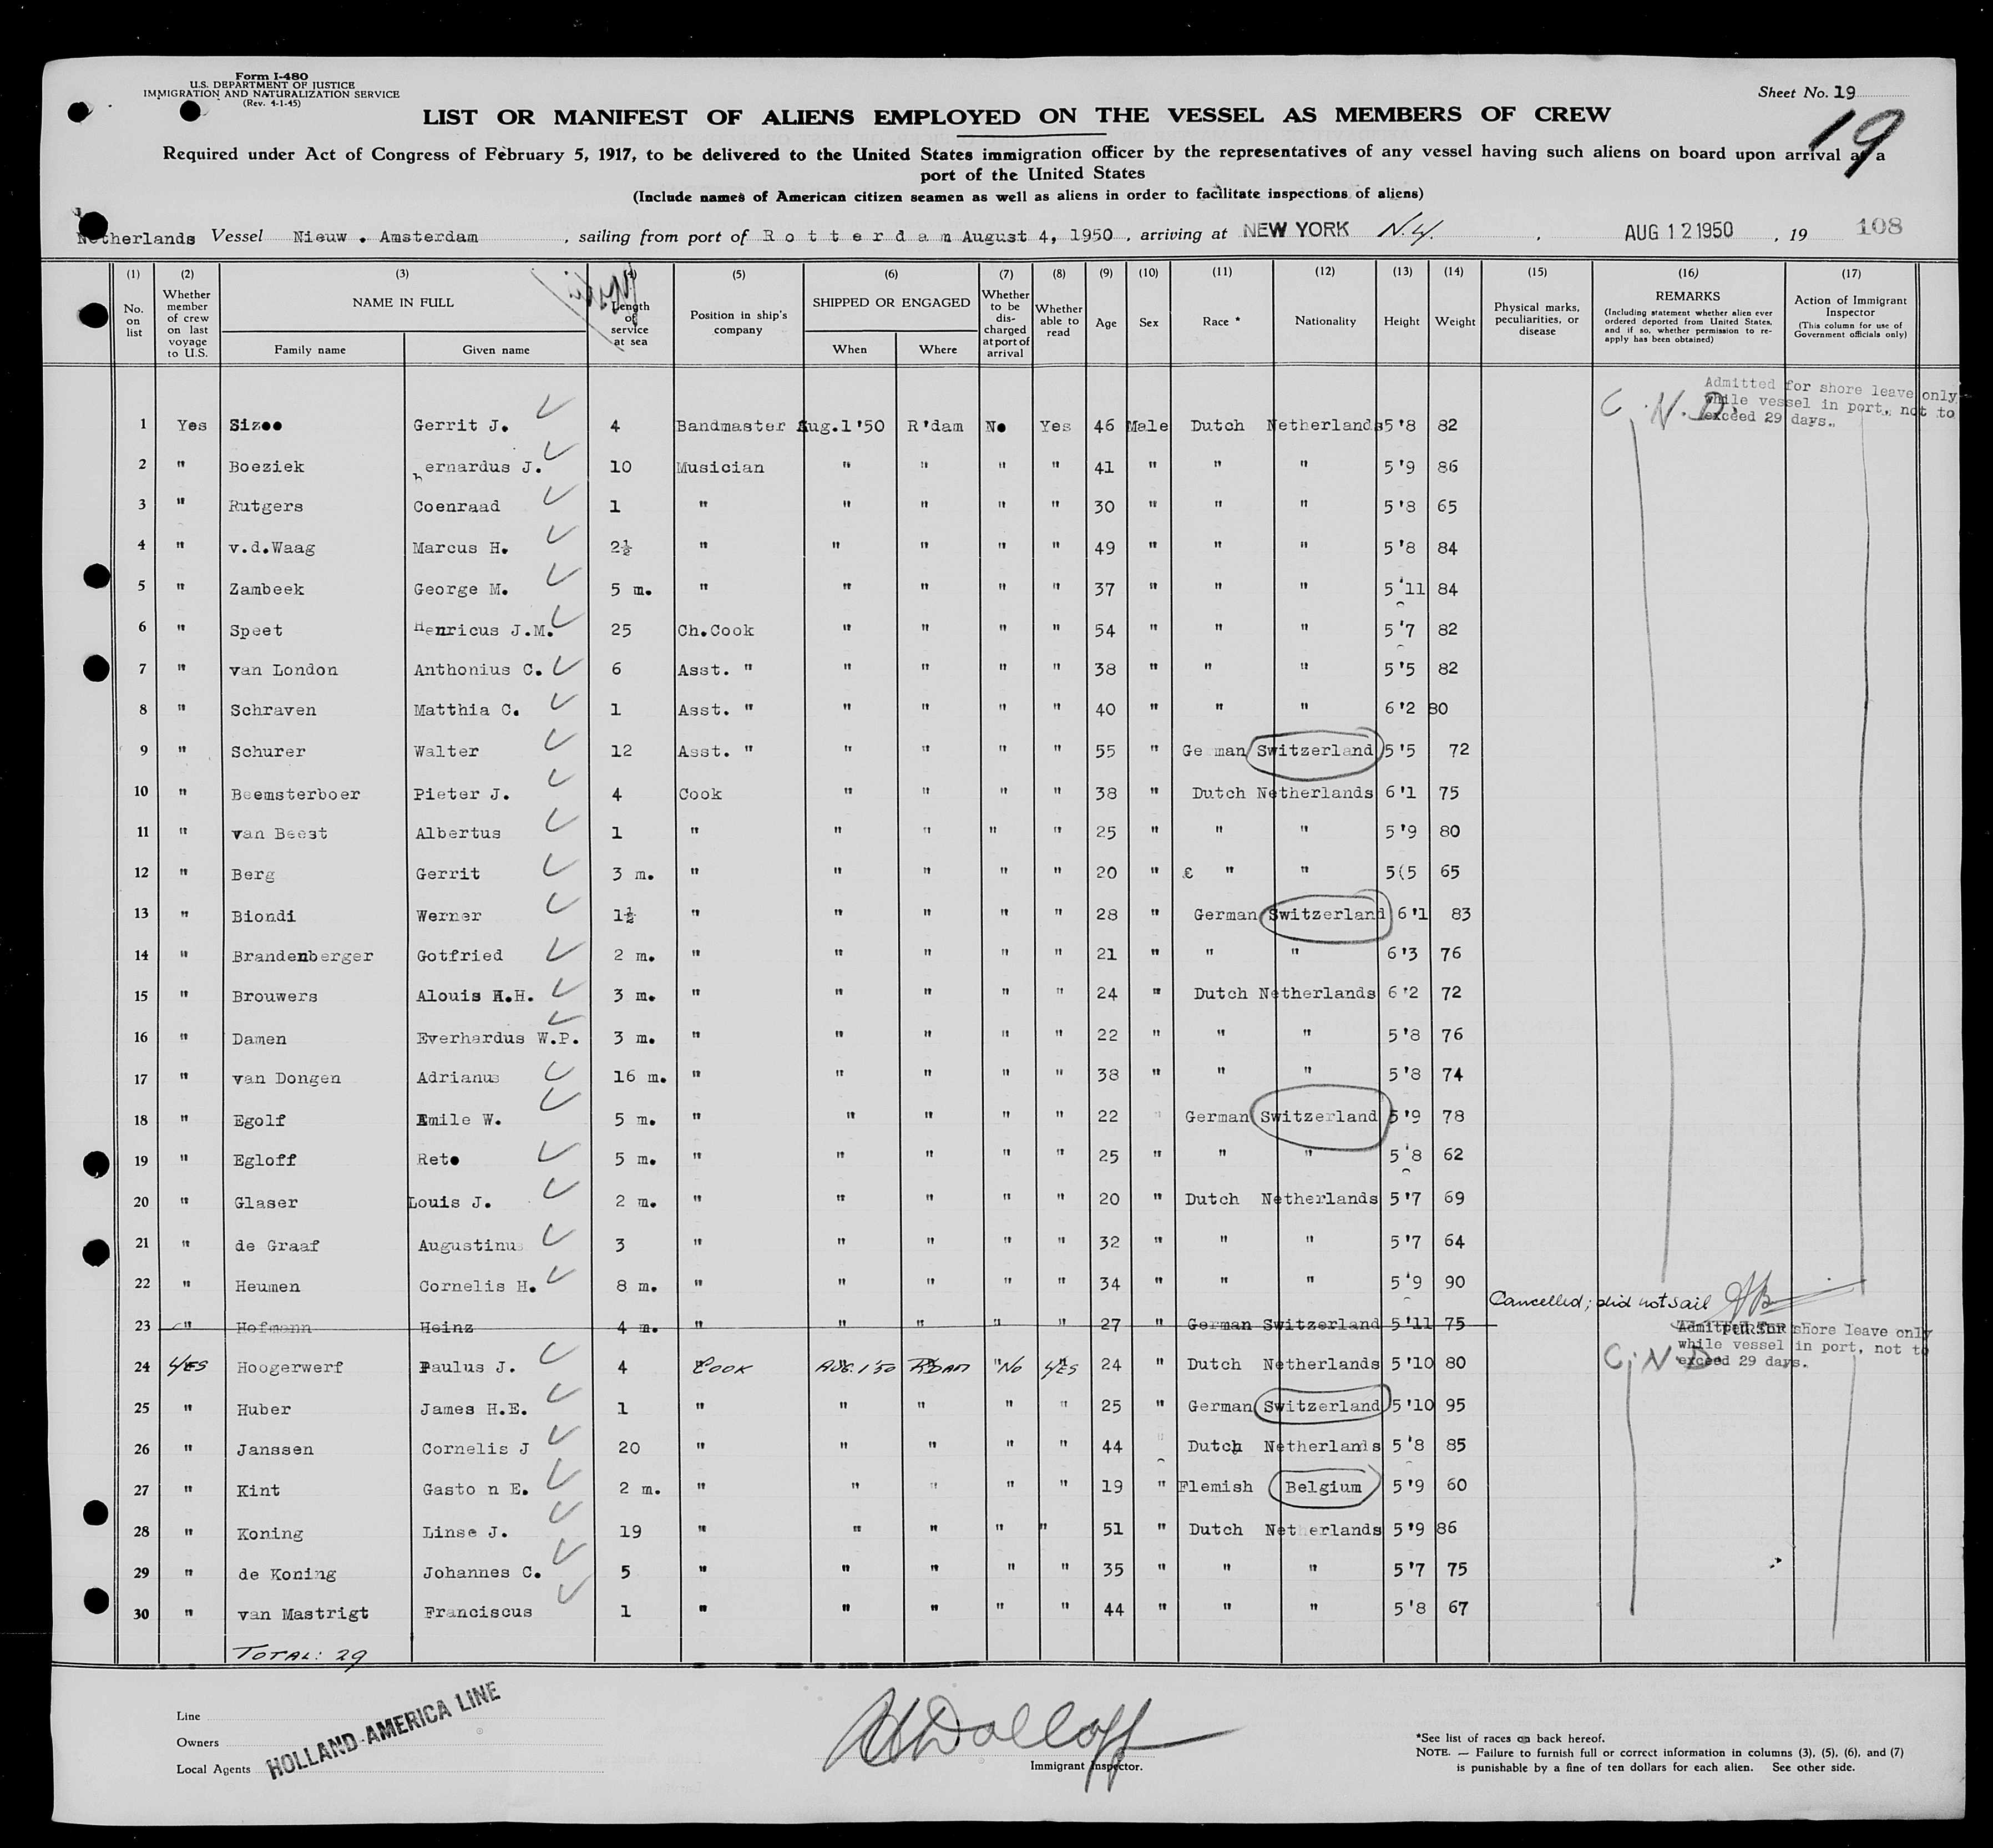 Form I-480
U.S. DEPARTMENT OF JUSTICE
IMMIGRATION AND NATURALIZATION SERVICE
(Rev. 4-1-45)
Sheet No. 19
19
LIST OR MANIFEST OF ALIENS EMPLOYED ON THE VESSEL AS MEMBERS OF CREW
Required under Act of Congress of February 5, 1917, to be delivered to the United States immigration officer by the representatives of any vessel having such aliens on board upon arrival at a
port of the United States
(Include names of American citizen seamen as well as aliens in order to facilitate inspections of aliens)
Netherlands Vessel Nieuw . Amsterdam , sailing from port of Rotterdam August 4, 1950 , arriving at NEW YORK N.Y. , AUG 12 1950 , 19 108
(1) No. on list
(2) Whether member of crew on last voyage to U.S.
(3) NAME IN FULL Family name Given name
(4) Length of service at sea
(5) Position in ship's company
(6) SHIPPED OR ENGAGED When Where
(7) Whether to be discharged at port of arrival
(8) Whether able to read
(9) Age
(10) Sex
(11) Race *
(12) Nationality
(13) Height
(14) Weight
(15) Physical marks, peculiarities, or disease
(16) REMARKS (Including statement whether alien ever ordered deported from United States, and if so, whether permission to re-apply has been obtained)
(17) Action of Immigrant Inspector (This column for use of Government officials only)
C.N.D. Admitted for shore leave only
while vessel in port, not to
exceed 29 days.
1 Yes Sizoo Gerrit J. 4 Bandmaster Aug.1'50 R'dam No Yes 46 Male Dutch Netherlands 5'8 82
2 " Boeziek ernardus J. 10 Musician " " " " 41 " " " 5'9 86
3 " Rutgers Coenraad 1 " " " " " 30 " " " 5'8 65
4 " v.d.Waag Marcus H. 2½ " " " " " 49 " " " 5'8 84
5 " Zambeek George M. 5 m. " " " " " 37 " " " 5'11 84
6 " Speet Henricus J.M. 25 Ch.Cook " " " " 54 " " " 5'7 82
7 " van London Anthonius C. 6 Asst. " " " " " 38 " " " 5'5 82
8 " Schraven Matthia C. 1 Asst. " " " " " 40 " " " 6'2 80
9 " Schurer Walter 12 Asst. " " " " " 55 " Ge man Switzerland 5'5 72
10 " Beemsterboer Pieter J. 4 Cook " " " " 38 " Dutch Netherlands 6'1 75
11 " van Beest Albertus 1 " " " " " 25 " " " 5'9 80
12 " Berg Gerrit 3 m. " " " " " 20 " € " " 5(5 65
13 " Biondi Werner 1½ " " " " " 28 " German Switzerland 6'1 83
14 " Brandenberger Gotfried 2 m. " " " " " 21 " " " 6'3 76
15 " Brouwers Alouis H.H. 3 m. " " " " " 24 " Dutch Netherlands 6'2 72
16 " Damen Everhardus W.P. 3 m. " " " " " 22 " " " 5'8 76
17 " van Dongen Adrianus 16 m. " " " " " 38 " " " 5'8 74
18 " Egolf Emile W. 5 m. " " " " " 22 " German Switzerland 5'9 78
19 " Egloff Reto 5 m. " " " " " 25 " " " 5'8 62
20 " Glaser Louis J. 2 m. " " " " " 20 " Dutch Netherlands 5'7 69
21 " de Graaf Augustinus 3 " " " " " 32 " " " 5'7 64
22 " Heumen Cornelis H. 8 m. " " " " " 34 " " " 5'9 90
Cancelled; did not sail
23 " Hofmann Heinz 4 m. " " " " " 27 " German Switzerland 5'11 75
PURSER
Admitted for shore leave only
while vessel in port, not to
exceed 29 days.
C.N.D.
24 YES Hoogerwerf Paulus J. 4 COOK AUG.1'50 R'DAM No YES 24 " Dutch Netherlands 5'10 80
25 " Huber James H.E. 1 " " " " " 25 " German Switzerland 5'10 95
26 " Janssen Cornelis J 20 " " " " " 44 " Dutch Netherlands 5'8 85
27 " Kint Gasto n E. 2 m. " " " " " 19 " Flemish Belgium 5'9 60
28 " Koning Linse J. 19 " " " " " 51 " Dutch Netherlands 5'9 86
29 " de Koning Johannes C. 5 " " " " " 35 " " " 5'7 75
30 " van Mastrigt Franciscus 1 " " " " " 44 " " " 5'8 67
TOTAL: 29
Line
Owners
Local Agents
HOLLAND-AMERICA LINE
Immigrant Inspector.
*See list of races on back hereof.
NOTE. — Failure to furnish full or correct information in columns (3), (5), (6), and (7)
is punishable by a fine of ten dollars for each alien. See other side.